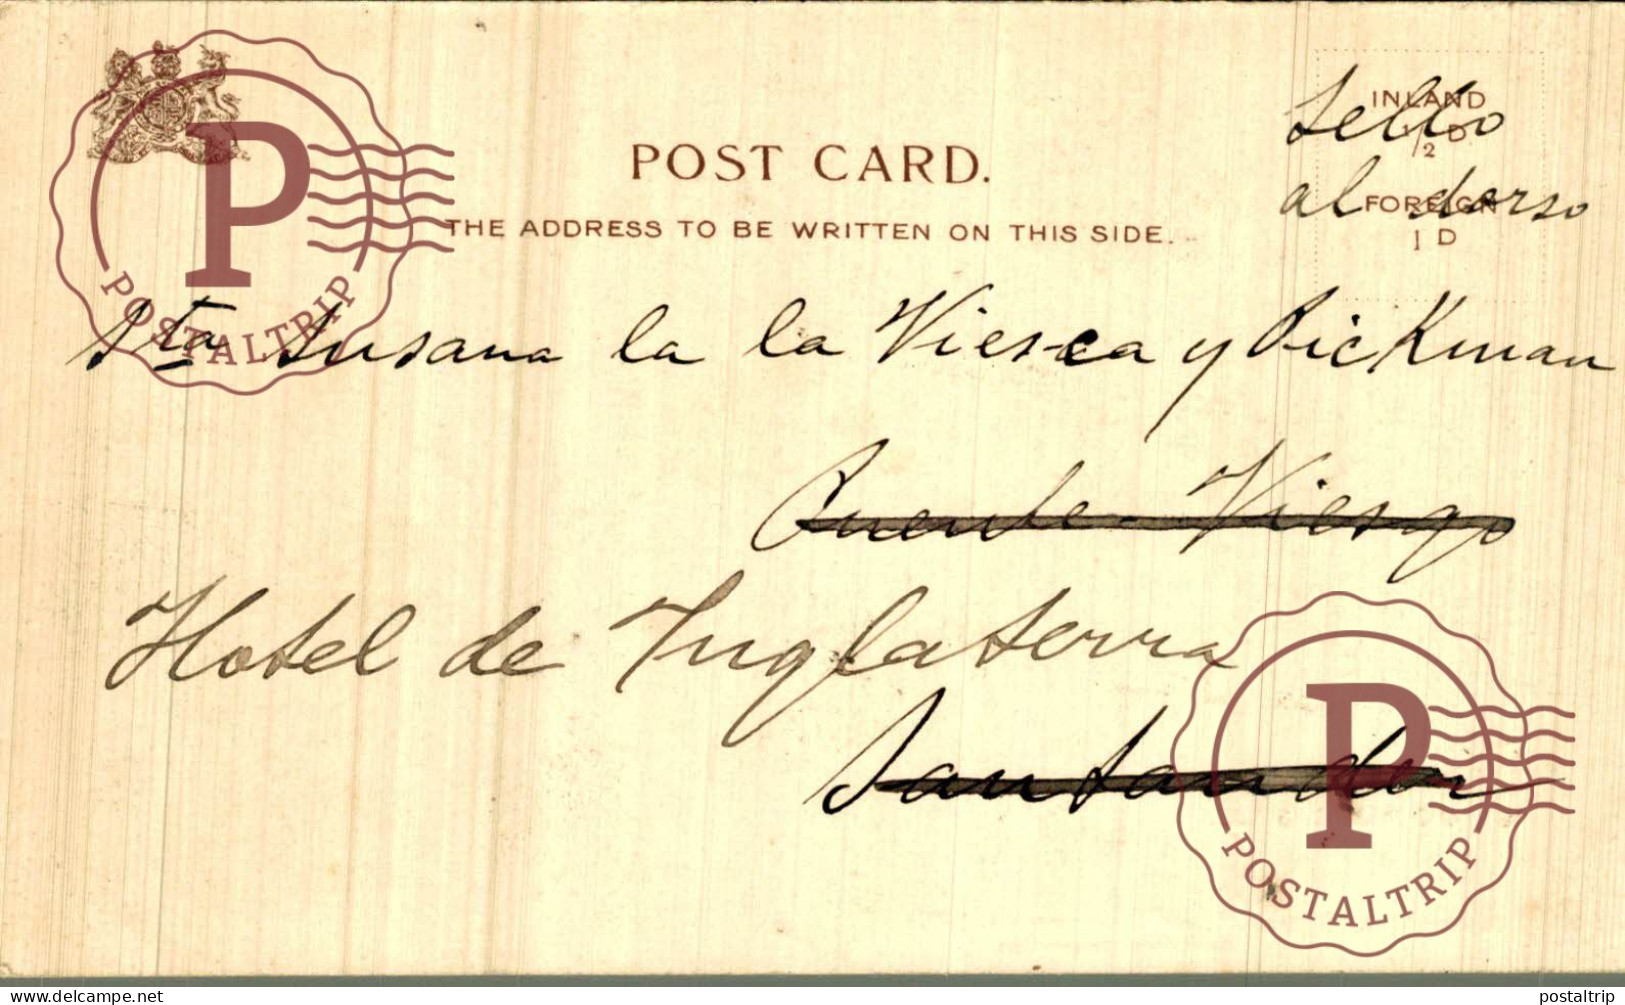 INLAND
1/2 D.
FOREIGN
1 D
Sello
al dorso
POST CARD.
THE ADDRESS TO BE WRITTEN ON THIS SIDE.
Sta Susana la la Viesca y Pickman
Puente-Viesgo
Hotel de Inglaterra
Santander
P
POSTALTRIP
P
POSTALTRIP
delcampe.net
postaltrip